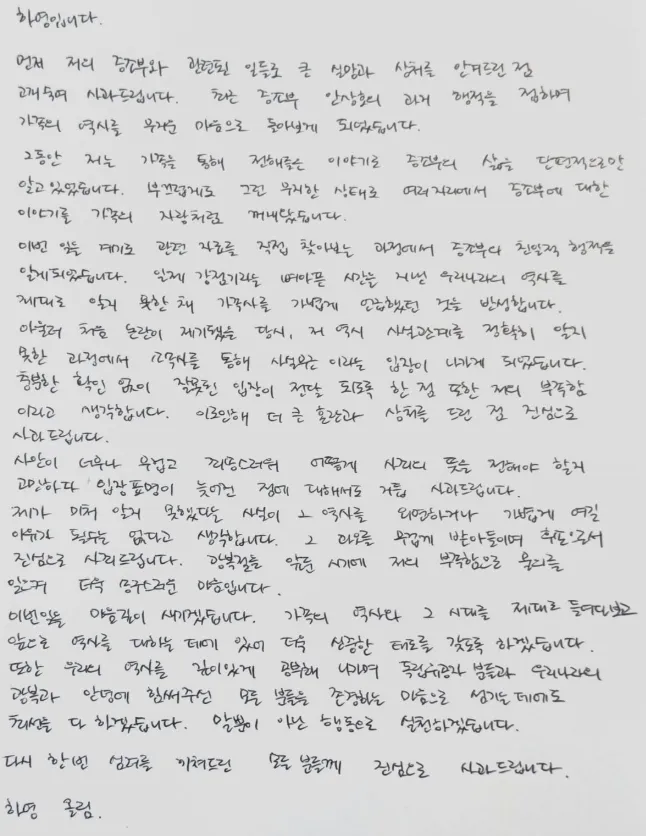 하영입니다.
먼저 저의 증조부와 관련된 일들로 큰 실망과 상처를 안겨드린 점
고개숙여 사과드립니다. 최근 증조부 안상호의 과거 행적을 접하며
가족의 역사를 무거운 마음으로 돌아보게 되었습니다.
그동안 저는 가족을 통해 전해들은 이야기로 증조부의 삶을 단편적으로만
알고있었습니다. 부끄럽게도 그런 무지한 상태로 여러자리에서 증조부에 대한
이야기를 가족의 자랑처럼 꺼내왔습니다.
이번 일을 계기로 관련 자료를 직접 찾아보는 과정에서 증조부의 친일적 행적을
알게되었습니다. 일제 강점기라는 뼈아픈 시간을 지낸 우리나라의 역사를
제대로 알지 못한 채 가족사를 가볍게 언급했던 것을 반성합니다.
아울러 처음 논란이 제기됐을 당시, 저 역시 사실관계를 정확히 알지
못한 과정에서 소속사를 통해 사실무근 이라는 입장이 나가게 되었습니다.
충분한 확인 없이 잘못된 입장이 전달 되도록 한 점 또한 저의 부족함
이라고 생각합니다. 이로인해 더 큰 혼란과 상처를 드린 점 진심으로
사과드립니다.
사안이 너무나 무겁고 죄송스러워 어떻게 사죄의 뜻을 전해야 할지
고민하다 입장표명이 늦어진 점에 대해서도 거듭 사과드립니다.
제가 미처 알지 못했다는 사실이 그 역사를 외면하거나 가볍게 여길
이유가 될수는 없다고 생각합니다. 그 과오를 무겁게 받아들이며 후손으로서
진심으로 사죄드립니다. 광복절을 앞둔 시기에 저의 부족함으로 물의를
일으켜 더욱 송구스러운 마음입니다.
이번일을 마음깊이 새기겠습니다. 가족의 역사와 그 시대를 제대로 들여다보고
앞으로 역사를 대하는 데에 있어 더욱 신중한 태도를 갖도록 하겠습니다.
또한 우리의 역사를 깊이있게 공부해 나가며 독립유공자 분들과 우리나라의
광복과 안녕에 힘써주신 모든 분들을 존경하는 마음으로 섬기는 데에도
최선을 다 하겠습니다. 말뿐이 아닌 행동으로 실천하겠습니다.
다시 한번 심려를 끼쳐드린 모든 분들께 진심으로 사과드립니다.
하영 올림.